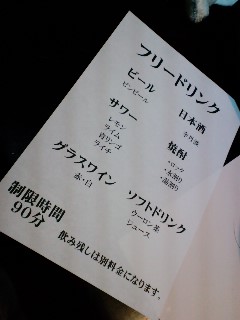 フリードリンク
ビール
ビンビール
サワー
レモン
ライム
青リンゴ
ライチ
グラスワイン
赤・白
日本酒
焼酎
・ロック
・水割り
・湯割り
ソフトドリンク
ウーロン茶
ジュース
制限時間
90分
飲み残しは別料金になります。